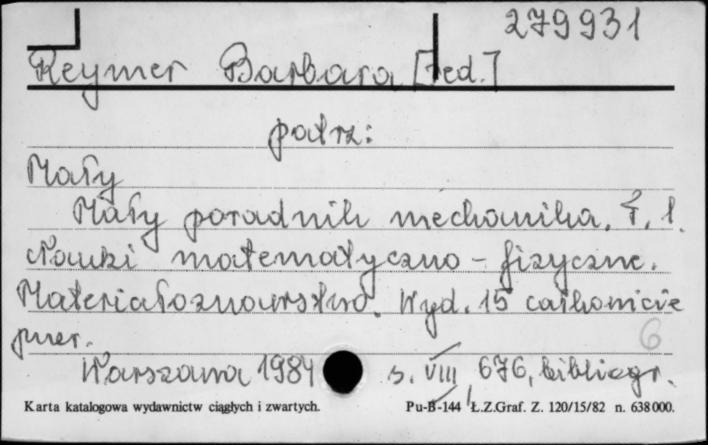 279931
Reymer Barbara [red.]
patrz:
Mały
Mały poradnik mechanika. T. 1.
Nauki matematyczno-fizyczne.
Materiałoznawstwo. Wyd. 15 całkowicie
przer.
6
Warszawa 1984 s. VIII 676, bibliogr.
Karta katalogowa wydawnictw ciągłych i zwartych. Pu-B-144 Ł.Z.Graf. Z. 120/15/82 n. 638000.